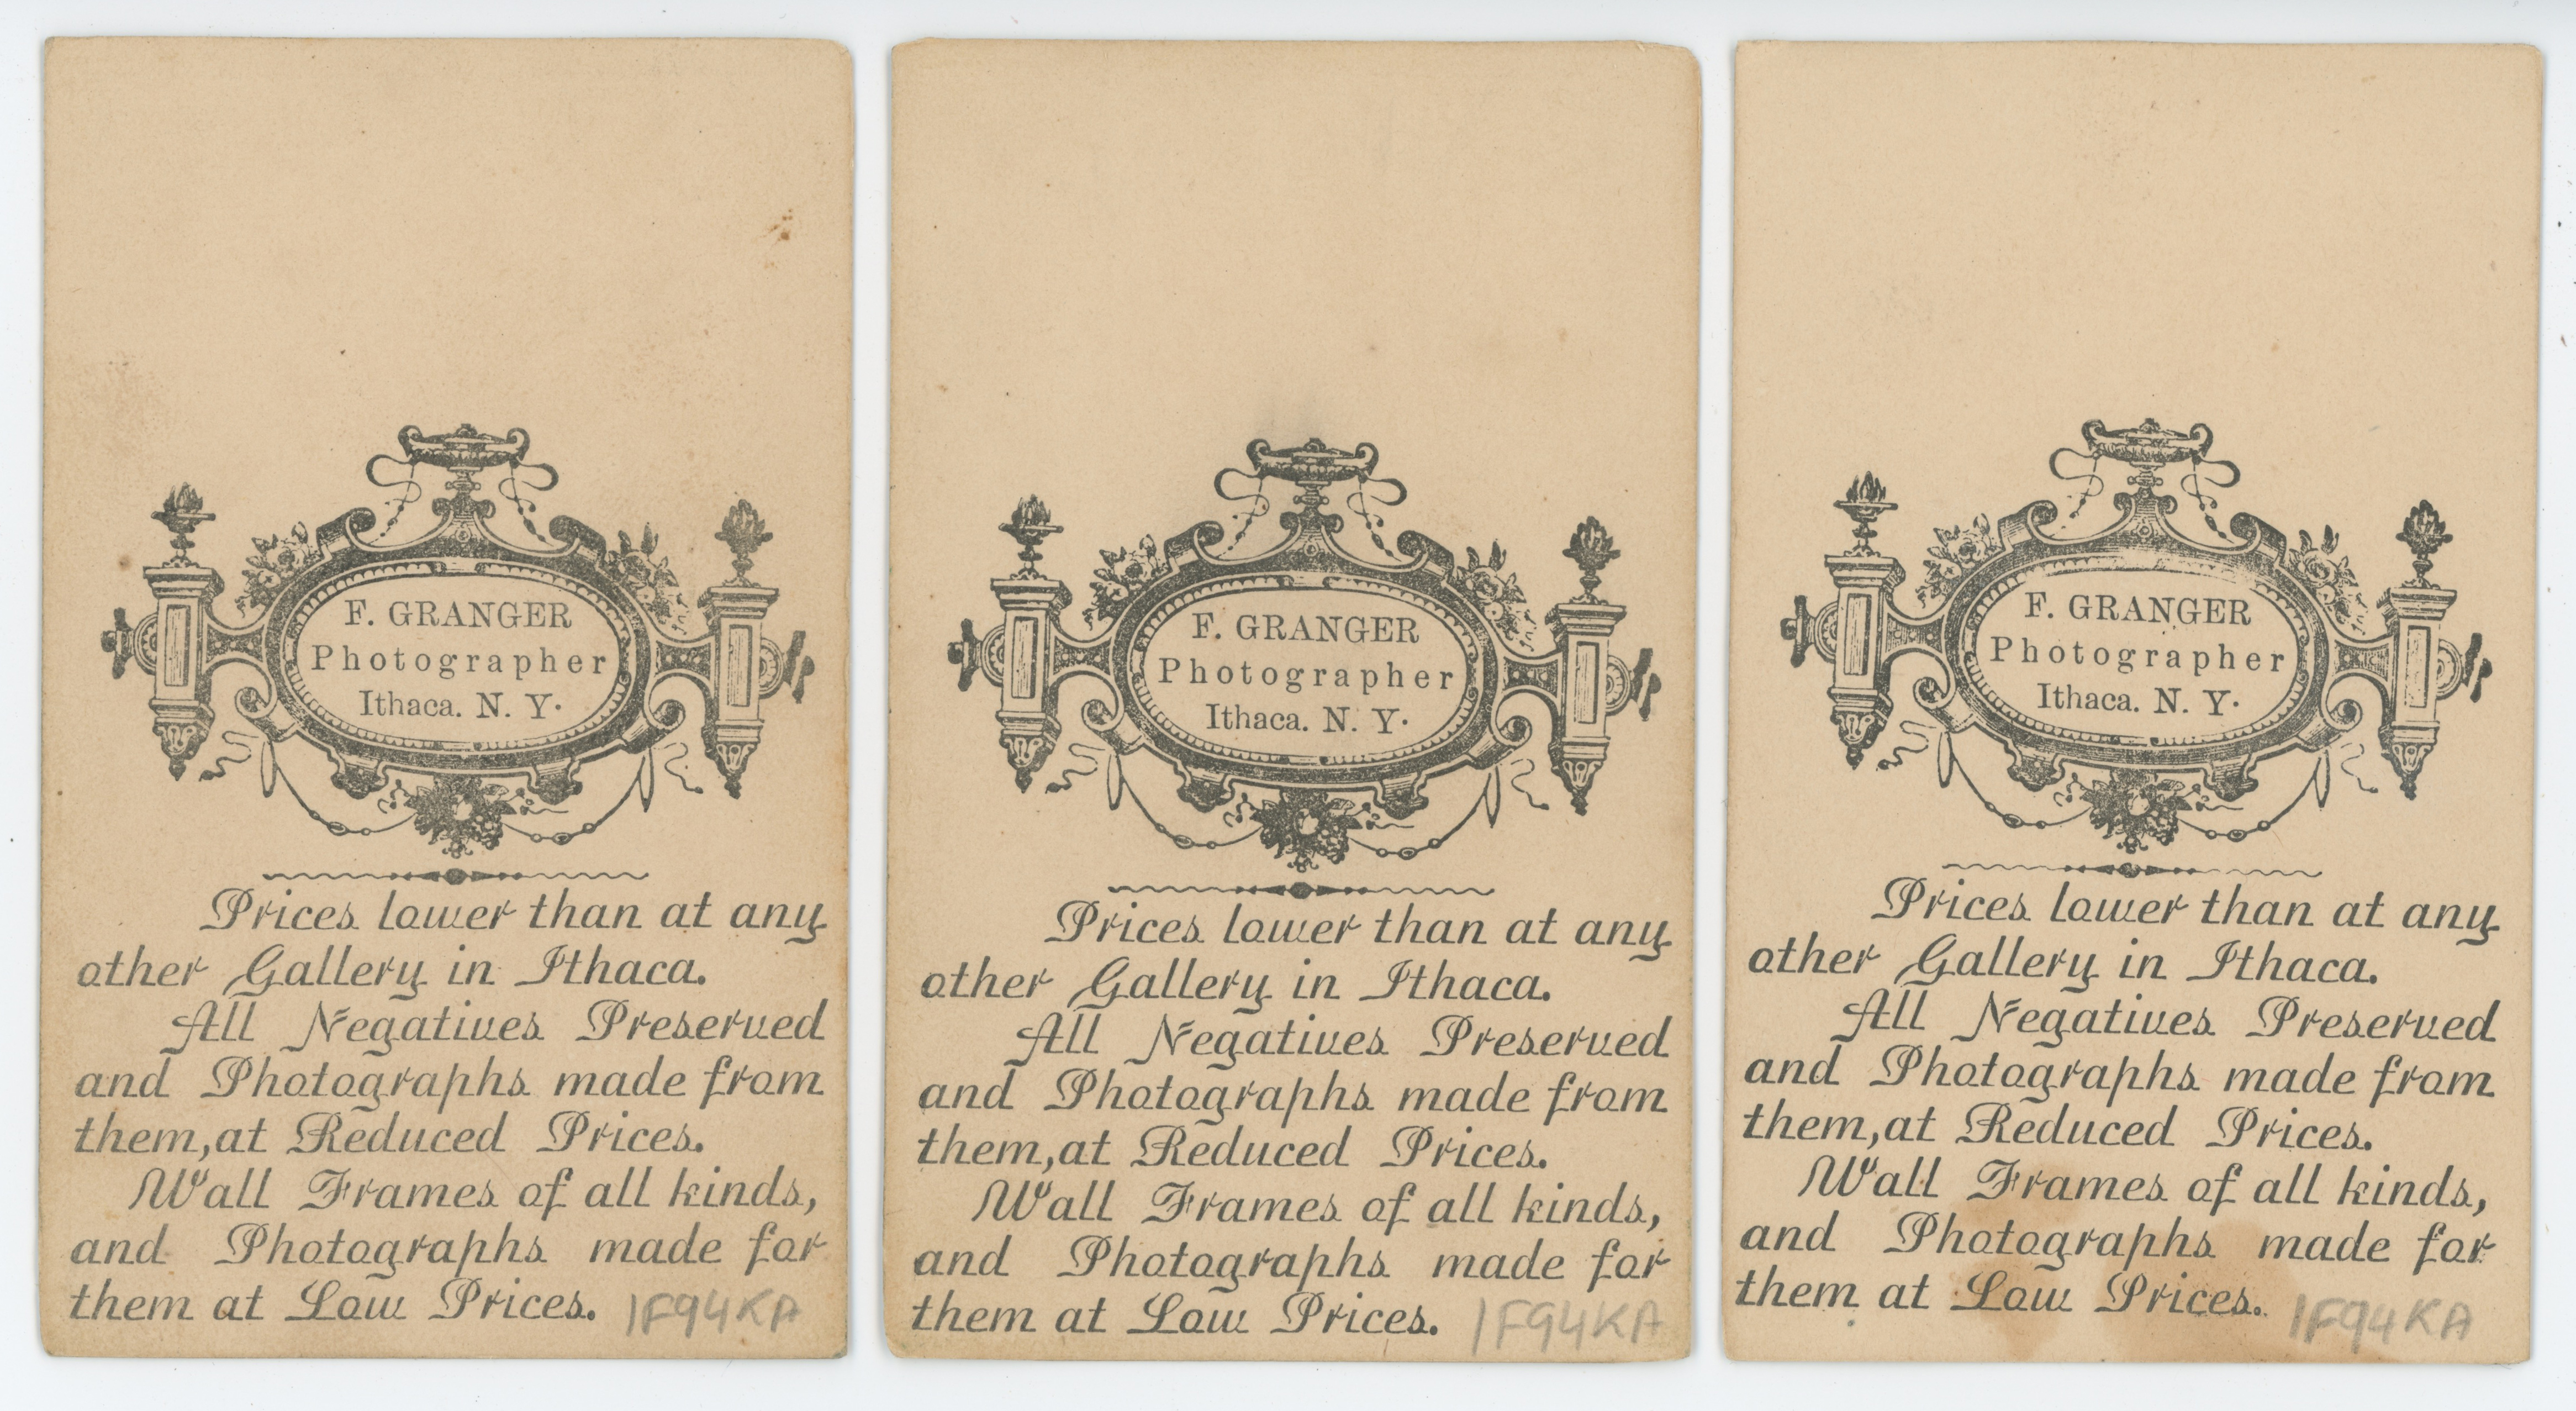 F. GRANGER
Photographer
Ithaca. N. Y.
Prices lower than at any
other Gallery in Ithaca.
All Negatives Preserved
and Photographs made from
them, at Reduced Prices.
Wall Frames of all kinds,
and Photographs made for
them at Low Prices. 1F94KA
F. GRANGER
Photographer
Ithaca. N. Y.
Prices lower than at any
other Gallery in Ithaca.
All Negatives Preserved
and Photographs made from
them, at Reduced Prices.
Wall Frames of all kinds,
and Photographs made for
them at Low Prices. 1F94KA
F. GRANGER
Photographer
Ithaca. N. Y.
Prices lower than at any
other Gallery in Ithaca.
All Negatives Preserved
and Photographs made from
them, at Reduced Prices.
Wall Frames of all kinds,
and Photographs made for
them at Low Prices. 1F94KA